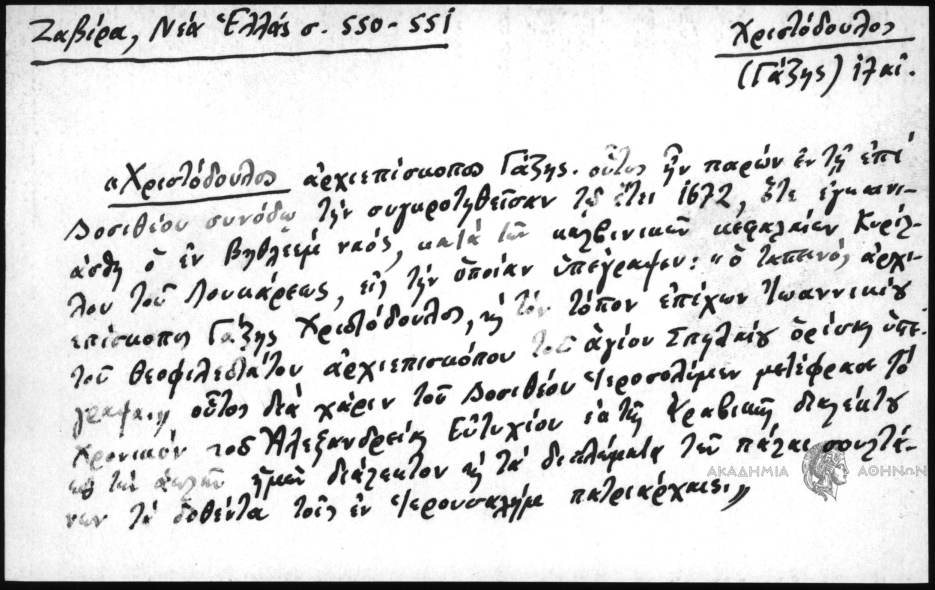 Ζαβίρα, Νέα Ἑλλάς σ. 550-551
Χριστόδουλος
(Γάζης) ιζ' αἰ.
«Χριστόδουλος ἀρχιεπίσκοπος Γάζης. οὗτος ἦν παρών ἐν τῇ ἐπί
Δοσιθέου συνόδῳ τήν συγκροτηθεῖσαν τῷ ἔτει 1672, ὅτε ἐγκαινι-
άσθη ὁ ἐν Βηθλεέμ ναός, κατά τῶν καλβινικῶν κεφαλαίων Κυρίλ-
λου τοῦ Λουκάρεως, εἰς τήν ὁποίαν ὑπέγραψεν: "ὁ ταπεινός ἀρχι-
επίσκοπος Γάζης Χριστόδουλος, καί τόν τόπον ἐπέχων Ἰωαννικίου
τοῦ θεοφιλεστάτου ἀρχιεπισκόπου τοῦ ἁγίου Σπηλαίου ὁρίσας ὑπέ-
γραψα," οὗτος διά χάριν τοῦ Δοσιθέου Ἱεροσολύμων μετέφρασε τό
Χρονικόν τοῦ Ἀλεξανδρείας Εὐτυχίου ἐκ τῆς Ἀραβικῆς διαλέκτου
εἰς τήν ἁπλῆν ἡμῶν διάλεκτον καί τά διπλώματα τῶν πάλαι σουλτά-
νων τά δοθέντα τοῖς ἐν Ἱερουσαλήμ πατριάρχαις.»
ΑΚΑΔΗΜΙΑ ΑΘΗΝΩΝ